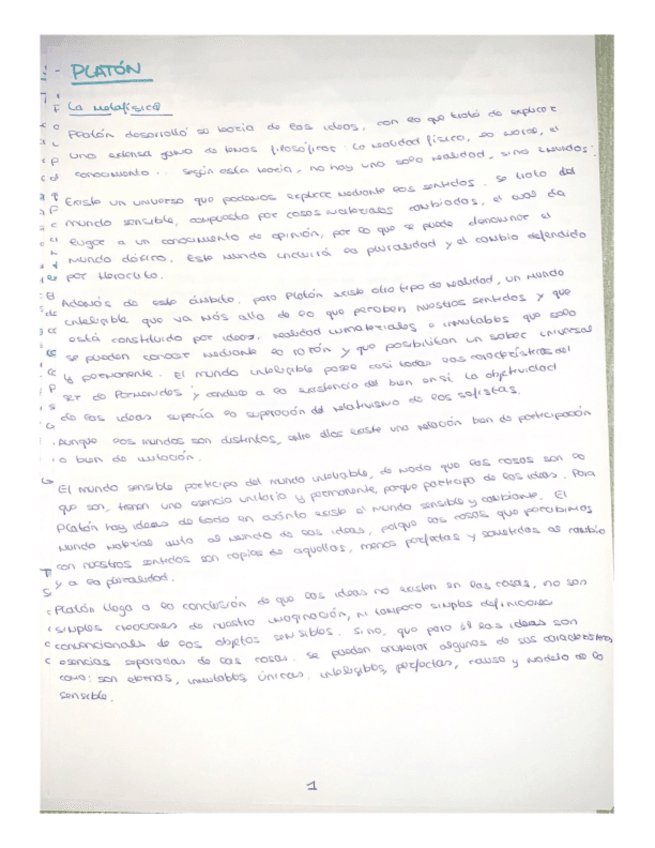 PLATÓN
La metafísica
Platón desarrolló su teoría de las ideas, con la que trató de explicar
una extensa gama de temas filosóficos: la realidad física, la moral, el
conocimiento... Según esta teoría, no hay una sola realidad, sino
Existe un universo que podemos explicar mediante los sentidos. Se trata del
mundo sensible, compuesto por cosas materiales cambiadas, el cual da
lugar a un conocimiento de opinión, por lo que se puede denominar el
mundo dóxico. Este mundo incluirá la pluralidad y el cambio defendido
por Heráclito.
Además de este ámbito, para Platón existe otro tipo de realidad, un mundo
inteligible que va más allá de lo que perciben nuestros sentidos y que
está constituido por ideas, realidad inmateriales e inmutables que solo
se pueden conocer mediante la razón y que posibilitan un saber universal
y permanente. El mundo inteligible posee casi todas las características del
ser de Parménides y conduce a la existencia del bien en sí. La objetividad
de las ideas suponía la superación del relativismo de los sofistas.
Aunque los mundos son distintos, entre ellos existe una relación bien de participación
o bien de imitación.
El mundo sensible participa del mundo inteligible, de modo que las cosas son lo
que son, tienen una esencia unitaria y permanente, porque participa de las ideas. Para
Platón hay ideas de todo en cuánto existe el mundo sensible y cambiante. El
mundo imita al mundo de las ideas, porque las cosas que percibimos
con nuestros sentidos son copias de aquellas, menos perfectas y sometidas al cambio
y a la pluralidad.
Platón llega a la conclusión de que las ideas no existen en las cosas, no son
simples creaciones de nuestra imaginación, ni tampoco simples definiciones
convencionales de los objetos sensibles. Sino, que para él las ideas son
esencias separadas de las cosas. Se pueden enumerar algunas de sus características,
como: son eternas, inmutables, únicas, inteligibles, perfectas, causa y modelo de lo
sensible.
1